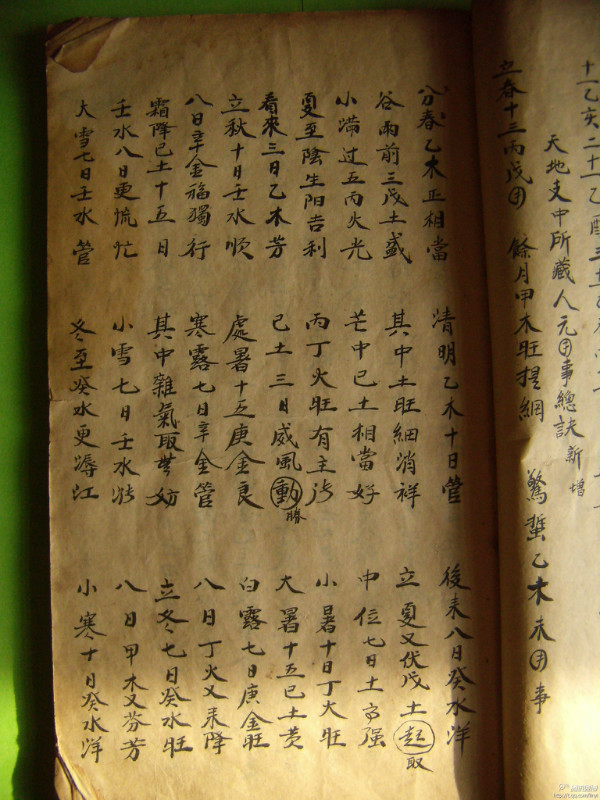 十一乙亥二十一乙酉三
天地支中所藏人元用事總訣 新增
立春十三丙戊用 餘月甲木旺提綱 驚蟄乙木未用事
分春乙木正相當 清明乙木十日管 後來八日癸水洋
谷雨前三戊土盛 其中土旺細消祥 立夏又伏戊土起取
小滿过五丙火光 芒中己土相當好 中位七日土高強
夏至陰生阳吉利 丙丁火旺有主张 小暑十日丁火旺
看來三日乙木芳 己土三日威風動勝 大暑十五己土黄
立秋十日壬水順 處暑十五庚金良 白露七日庚金旺
八日辛金福獨行 寒露七日辛金管 八日丁火又來降
霜降己土十五日 其中雜氣取無妨 立冬七日癸水旺
壬水八日更慌忙 小雪七日壬水张 八日甲木又芬芳
大雪七日壬水管 冬至癸水更潺江 小寒十日癸水洋